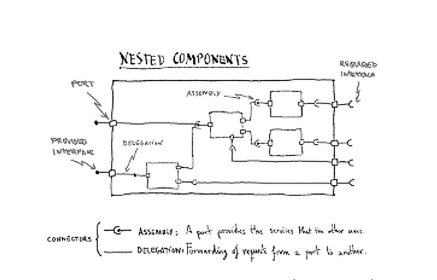 NESTED COMPONENTS
REQUIRED
INTERFACE
PORT
ASSEMBLY
PROVIDED
INTERFACE
DELEGATION
CONNECTORS
ASSEMBLY: A part provides the services that the other uses.
DELEGATION: Forwarding of requests from a port to another.